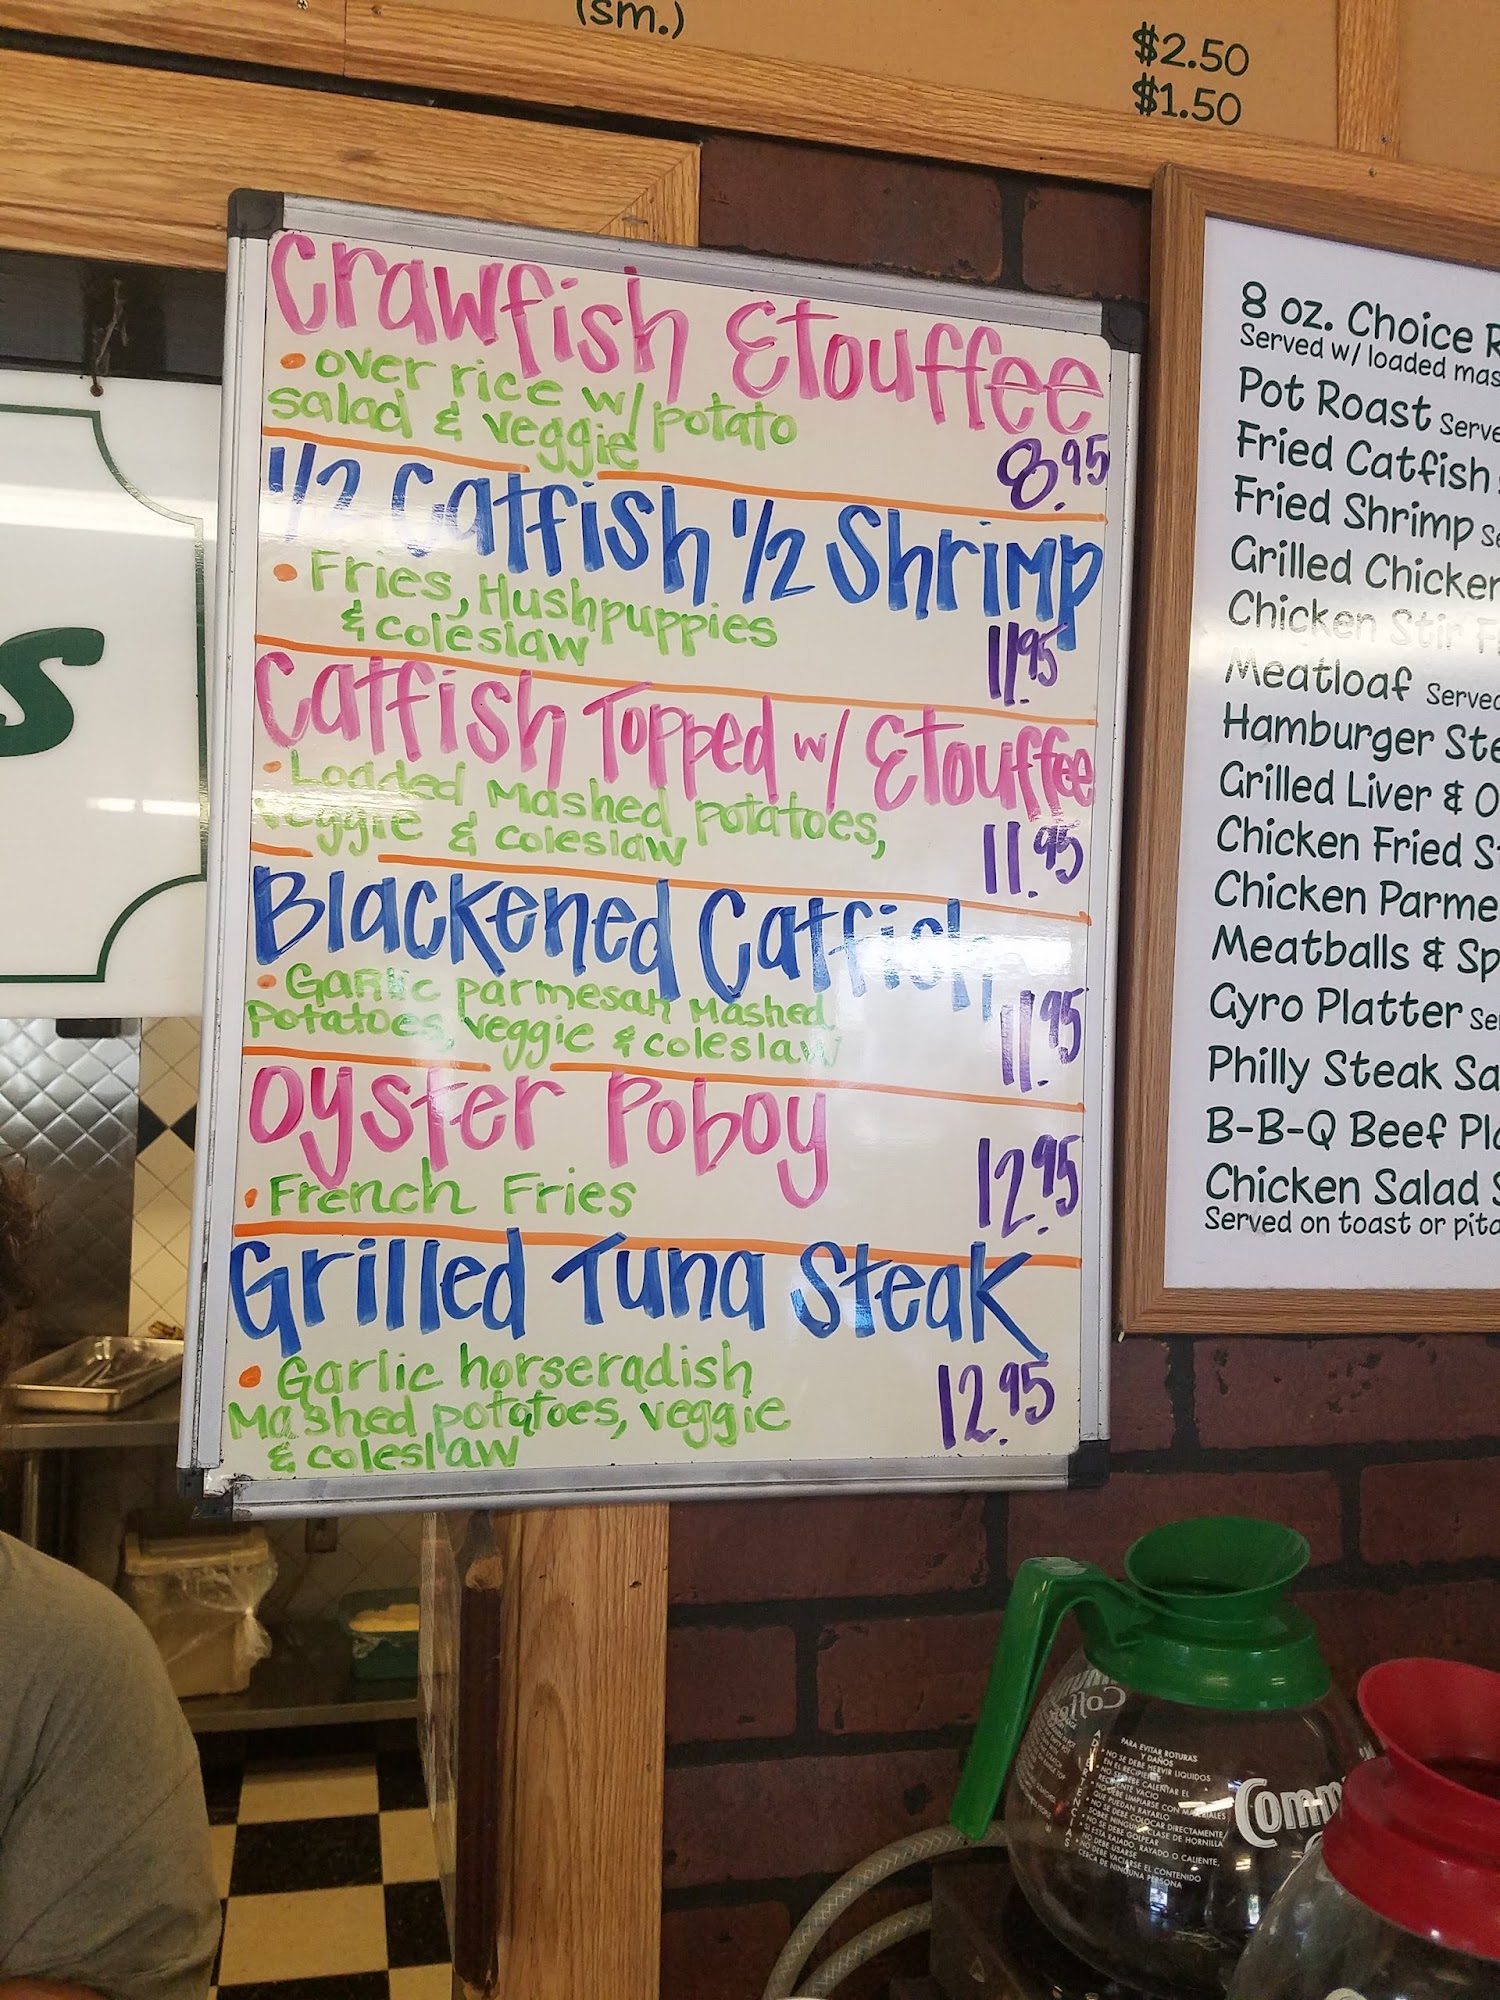 (sm.)
$2.50
$1.50
Crawfish Etouffee
• over rice w/ potato
salad & veggie
8.95
1/2 Catfish 1/2 Shrimp
• Fries, Hushpuppies
& coleslaw
11.95
Catfish Topped w/ Etouffee
• Loaded Mashed potatoes,
veggie & coleslaw
11.95
Blackened Catfish
• Garlic parmesan Mashed
Potatoes, veggie & coleslaw
11.95
Oyster Poboy
• French Fries
12.95
Grilled Tuna Steak
• Garlic horseradish
Mashed potatoes, veggie
& coleslaw
12.95
s
8 oz. Choice R
Served w/ loaded mas
Pot Roast Serve
Fried Catfish
Fried Shrimp Se
Grilled Chicken
Chicken Stir F
Meatloaf Served
Hamburger Ste
Grilled Liver & O
Chicken Fried S
Chicken Parme
Meatballs & Sp
Gyro Platter Se
Philly Steak Sa
B-B-Q Beef Pla
Chicken Salad S
Served on toast or pita
Coffee
ADVERTENCIAS
PARA EVITAR ROTURAS
Y DAÑOS
• NO SE DEBE HERVIR LIQUIDOS
EN EL RECIPIENTE
• NO SE DEBE CALENTAR EL
RECIPIENTE VACIO
• NO DEBE LIMPIARSE CON MATERIALES
QUE PUEDAN RAYARLO
• NO SE DEBE COLOCAR DIRECTAMENTE
SOBRE NINGUNA CLASE DE HORNILLA
• NO SE DEBE GOLPEAR
• SI ESTA RAJADO, RAYADO O CALIENTE,
NO DEBE USARSE
• NO DEBE VACIARSE EL CONTENIDO
CERCA DE NINGUNA PERSONA
Comm